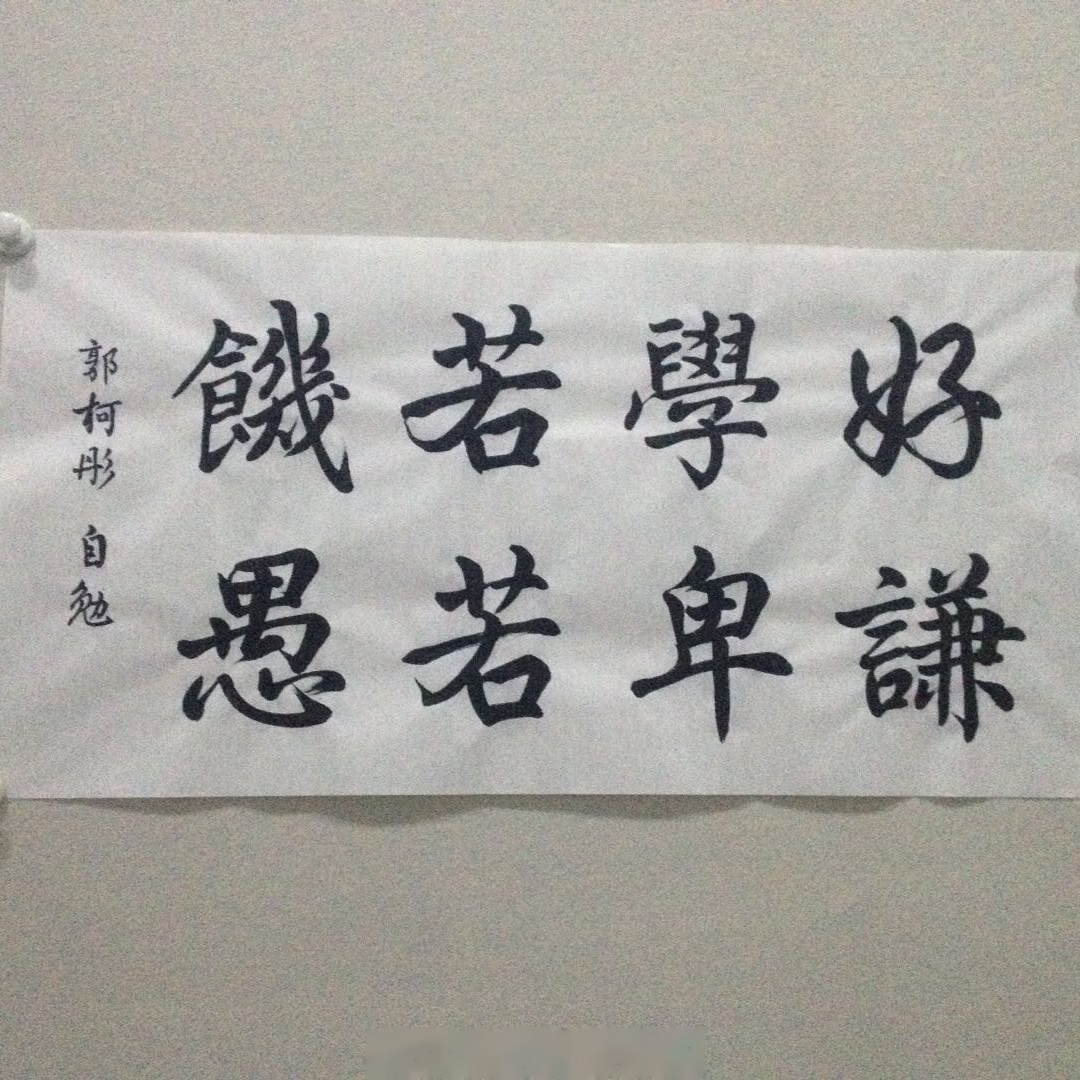 好學若饑
謙卑若愚
郭柯彤 自勉